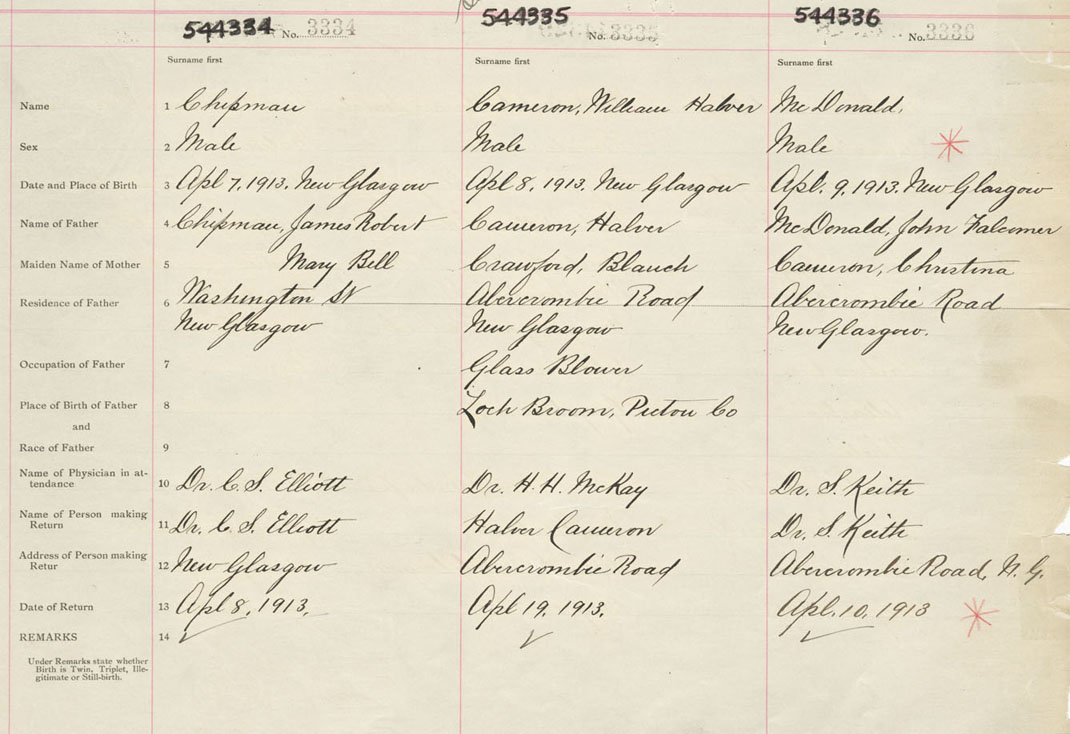 544334 No. 3334 544335 No. 3335 544336 No. 3336
Surname first Surname first Surname first
Name 1 Chipman Cameron, William Halver McDonald,
Sex 2 Male Male Male
Date and Place of Birth 3 Apl 7, 1913. New Glasgow Apl 8, 1913. New Glasgow Apl. 9, 1913. New Glasgow
Name of Father 4 Chipman, James Robert Cameron, Halver McDonald, John Falconer
Maiden Name of Mother 5 Mary Bell Crawford, Blanch Cameron, Christina
Residence of Father 6 Washington St Abercrombie Road Abercrombie Road
New Glasgow New Glasgow New Glasgow.
Occupation of Father 7 Glass Blower
Place of Birth of Father 8 Loch Broom, Pictou Co
and
Race of Father 9
Name of Physician in at-
tendance 10 Dr. C. S. Elliott Dr. H. H. McKay Dr. S. Keith
Name of Person making
Return 11 Dr. C. S. Elliott Halver Cameron Dr. S. Keith
Address of Person making
Retur 12 New Glasgow Abercrombie Road Abercrombie Road, N. G.
Date of Return 13 Apl 8, 1913. Apl 19, 1913. Apl. 10, 1913
REMARKS 14
Under Remarks state whether
Birth is Twin, Triplet, Ille-
gitimate or Still-birth.